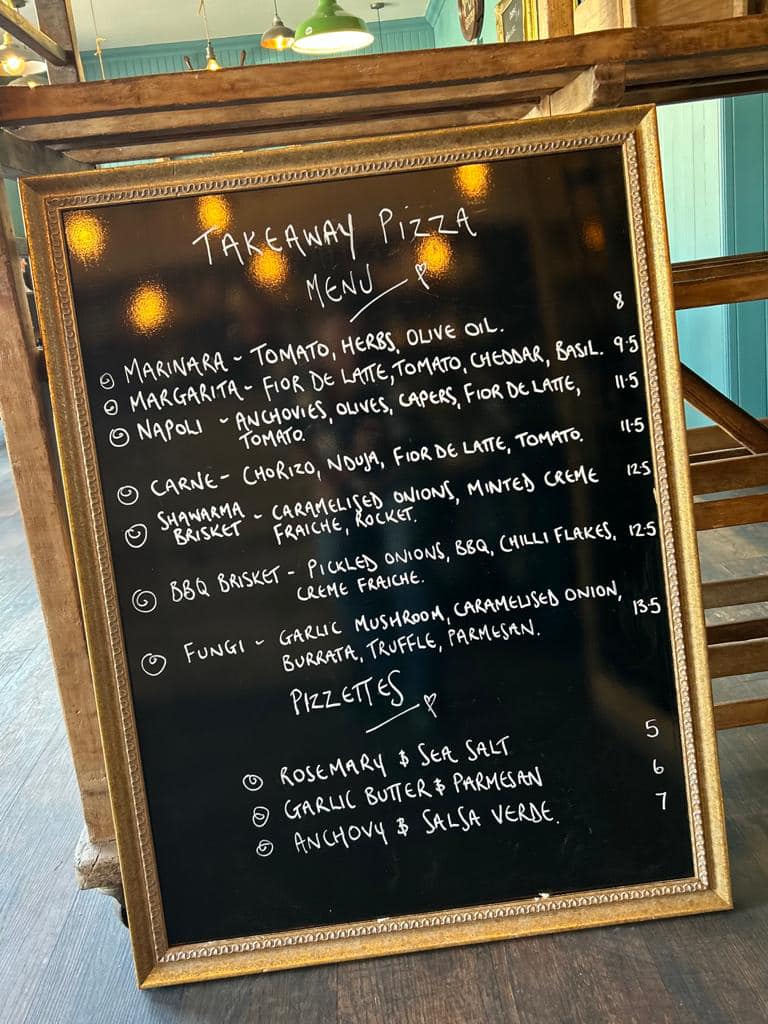 TAKEAWAY PIZZA
MENU
MARINARA - TOMATO, HERBS, OLIVE OIL. 8
MARGARITA - FIOR DE LATTE, TOMATO, CHEDDAR, BASIL. 9.5
NAPOLI - ANCHOVIES, OLIVES, CAPERS, FIOR DE LATTE, 11.5
TOMATO.
CARNE - CHORIZO, NDUJA, FIOR DE LATTE, TOMATO. 11.5
SHAWARMA
BRISKET - CARAMELISED ONIONS, MINTED CREME 12.5
FRAICHE, ROCKET.
BBQ BRISKET - PICKLED ONIONS, BBQ, CHILLI FLAKES, 12.5
CREME FRAICHE.
FUNGI - GARLIC MUSHROOM, CARAMELISED ONION, 13.5
BURRATA, TRUFFLE, PARMESAN.
PIZZETTES
ROSEMARY & SEA SALT 5
GARLIC BUTTER & PARMESAN 6
ANCHOVY & SALSA VERDE. 7